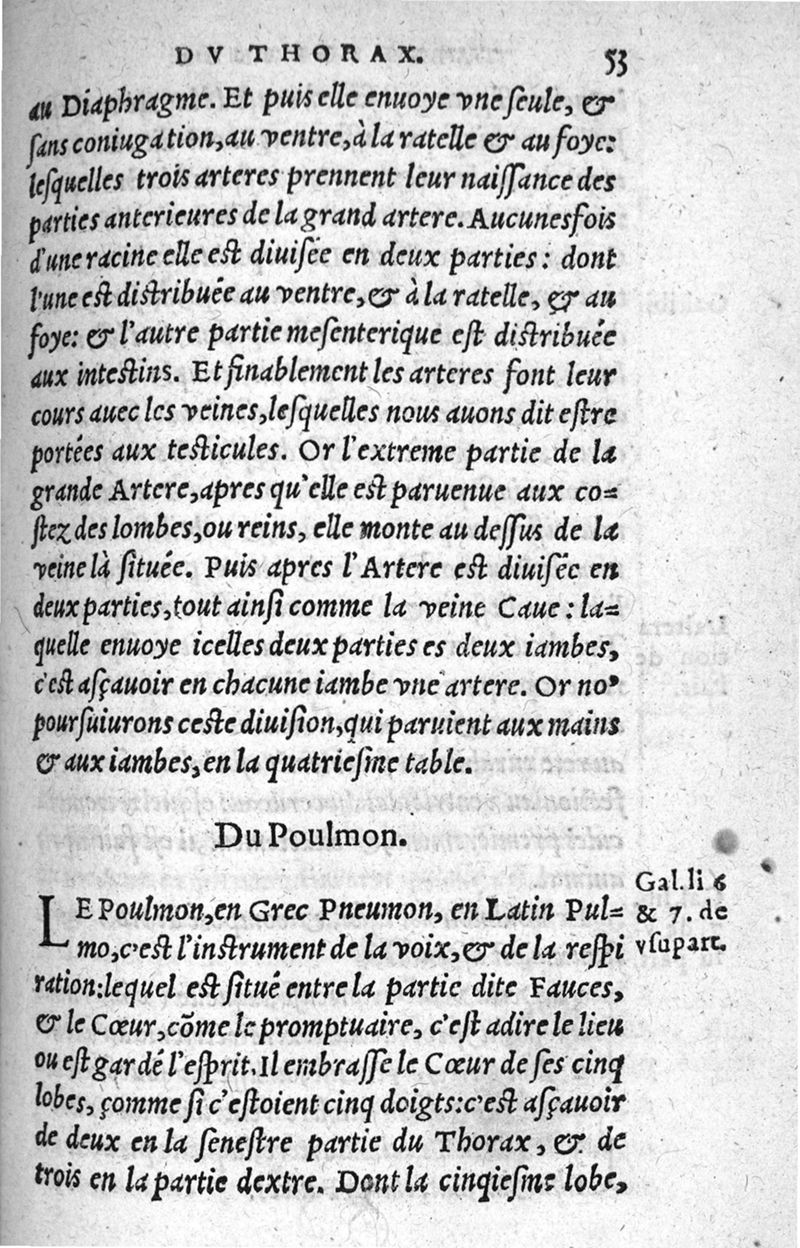 DV THORAX. 53
au Diaphragme. Et puis elle enuoye vne seule, &
sans coniugation, au ventre, à la ratelle & au foye:
lesquelles trois arteres prennent leur naissance des
parties anterieures de la grand artere. Aucunesfois
d'une racine elle est diuisée en deux parties: dont
l'une est distribuée au ventre, & à la ratelle, & au
foye: & l'autre partie mesenterique est distribuée
aux intestins. Et finablement les arteres font leur
cours auec les veines, lesquelles nous auons dit estre
portées aux testicules. Or l'extreme partie de la
grande Artere, apres qu'elle est paruenue aux co=
stez des lombes, ou reins, elle monte au dessus de la
veine là située. Puis apres l'Artere est diuisée en
deux parties, tout ainsi comme la veine Caue: la=
quelle enuoye icelles deux parties es deux iambes,
c'est asçauoir en chacune iambe vne artere. Or no⁹
poursuiurons ceste diuision, qui paruient aux mains
& aux iambes, en la quatriesme table.
Du Poulmon.
LE Poulmon, en Grec Pneumon, en Latin Pul=
mo, c'est l'instrument de la voix, & de la respi
ration: lequel est situé entre la partie dite Fauces,
& le Cœur, cōme le promptuaire, c'est adire le lieu
ou est gardé l'esprit. Il embrasse le Cœur de ses cinq
lobes, çomme si c'estoient cinq doigts: c'est asçauoir
de deux en la senestre partie du Thorax, & de
trois en la partie dextre. Dont la cinqiesme lobe,
Gal. li 6
& 7. de
vsu part.